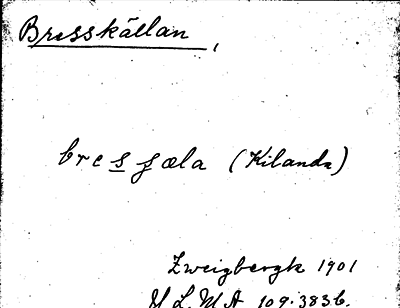 Bresskällan,
bresʃæla (Kilanda)
Zweigbergk 1901
V L M A 109:3836.